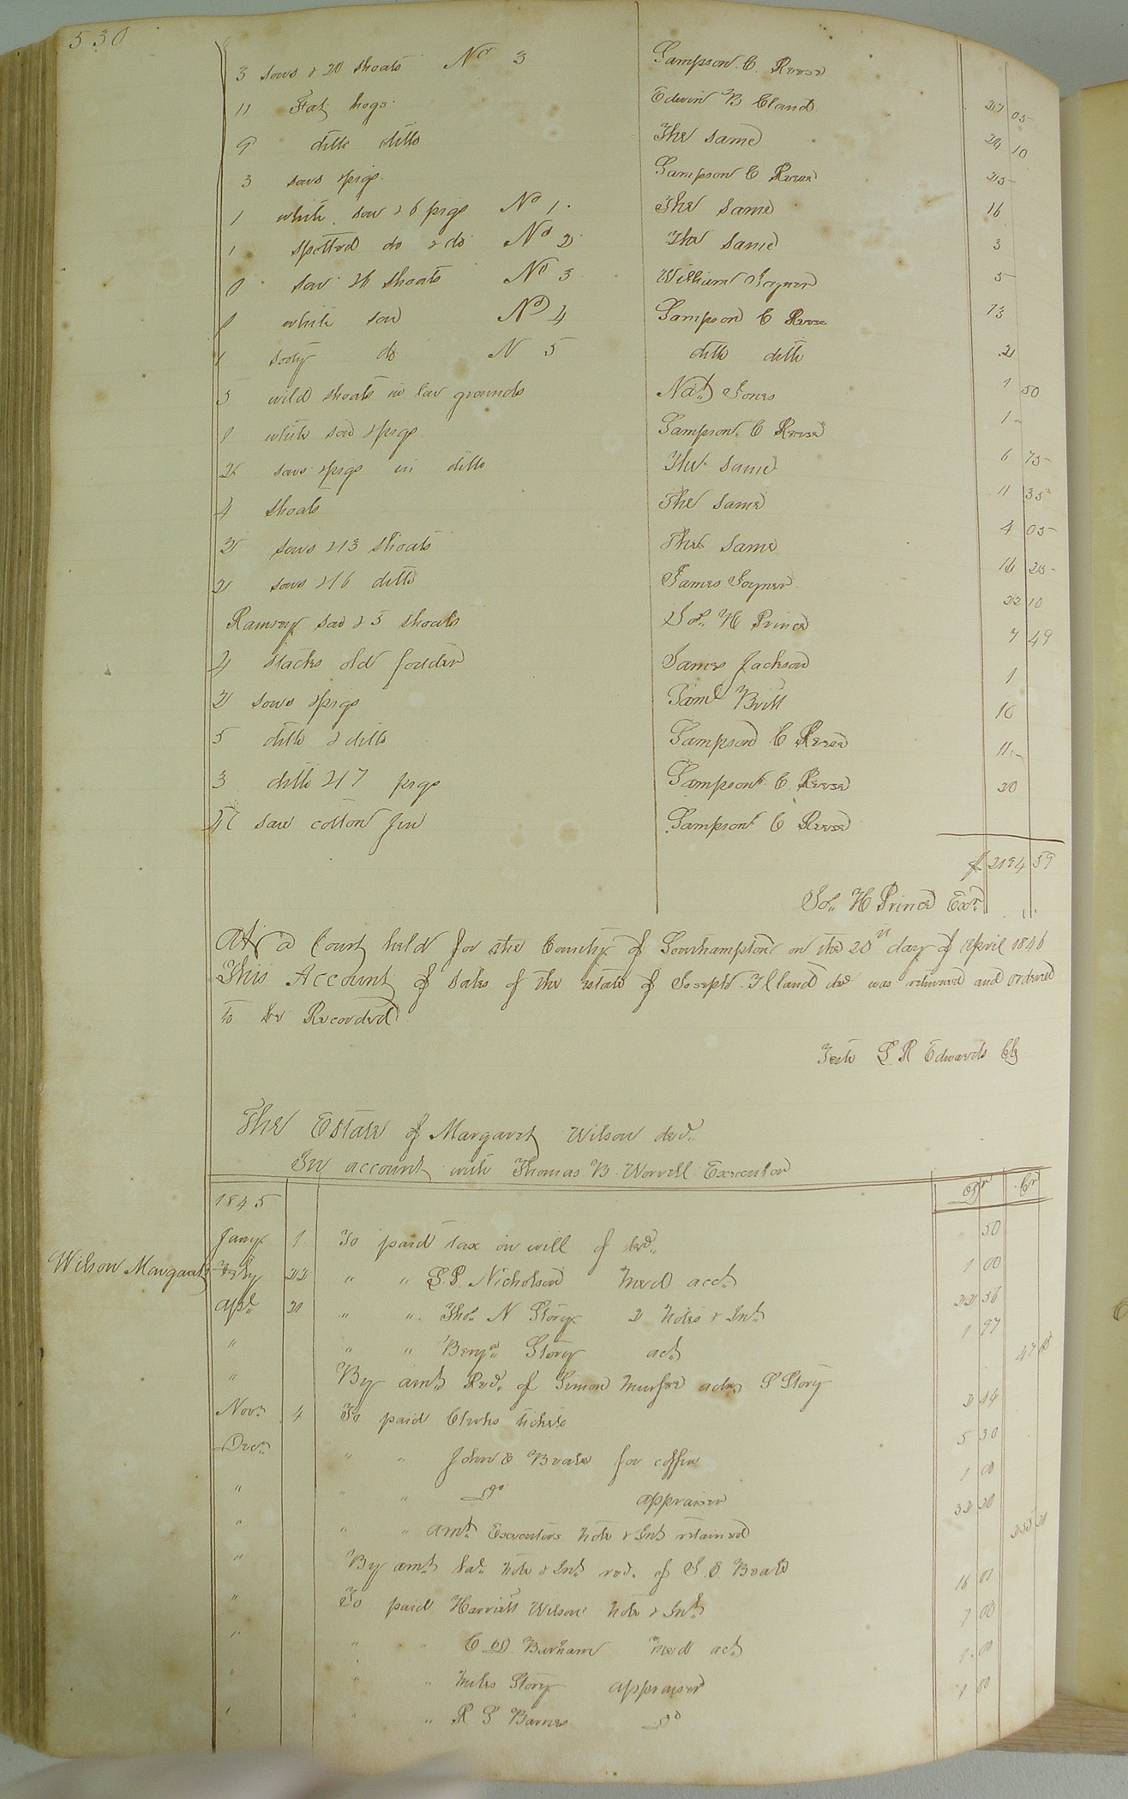 530
3 sows & 20 shoats No 3 Sampson C. Reese
11 Fat hogs Edwin B Cland 27 05
9 ditto ditto The same 24 10
3 sows & pigs Sampson C Reese 25
1 white sow & 6 pigs No 1 The same 16
1 spotted do & do No 2 The same 3
sow & 6 shoats No 3 William Joyner 5
1 white sow No 4 Sampson C Reese 13
1 sooty do N 5 ditto ditto 2
5 wild shoats in low grounds Nat. Jones 1 50
1 white sow & pigs Sampson. C Reese 1
2 sows & pigs in ditto The same 6 75
4 shoats The same 11 35
2 sows & 13 shoats The same 4 05
2 sows & 16 ditto James Joyner 16 25
Ramsey sow & 5 shoats Jos. H Prince 22 10
4 stacks old fodder James Jackson 7 49
2 sows & pigs Saml Britt 1
5 ditto & ditto Sampson C Reese 16
3 ditto & 17 pigs Sampson C. Reese 11
saw cotton Gin Sampson C Reese 20
$2194 59
Jos. H Prince Exr
At a Court held for the County of Southampton on the 20th day of April 1846
This Account of sales of the estate of Joseph T Cland decd was returned and ordered
to be Recorded
Teste L R Edwards Clk
The Estate of Margaret Wilson decd.
In account with Thomas. B. Worrell Executor
Dr Cr
1845
Jany 1 To paid tax on will of decd. 50
Wilson Margaret
Feby 22 " " Nicholson Merd acct 1 00
Apl. 20 " " Thos. N Story 2 notes & Int. 22 36
" " " Benjn. Story act 1 97
" By amt. Recd. of Simon Murfee S Story 47
Novr. 4 To paid Clerks tickets 2 44
Decr. " " John E Beale for coffin 5 30
" " " Do appraiser 1 00
" " " amt. Executors note & Int retained 32 20
" By amt. note & Int. recd. of J. E Beale
" To paid Harriett Wilson note & Int. 16 01
" " " C D Barham Merd act 7 00
" " " Miles Story appraiser 1 00
" " " R S Barnes Do 1 00